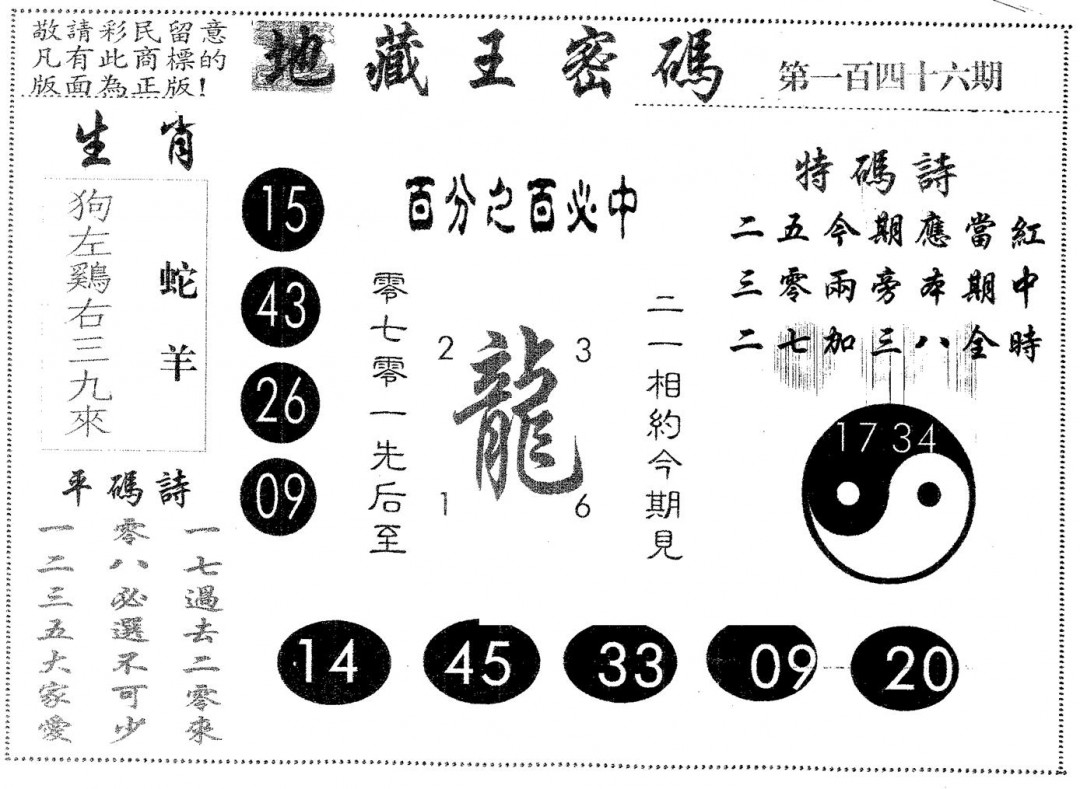 敬請彩民留意
凡有此商標的
版面為正版!
地藏王密碼
第一百四十六期
生肖
狗左鷄右三九來
蛇羊
15
43
26
09
百分之百必中
零七零一先后至
2
3
龍
1
6
二一相約今期見
特碼詩
二五今期應當紅
三零兩旁本期中
二七加三八全時
17 34
平碼詩
一七過去二零來
零八必選不可少
一二三五大家愛
14
45
33
09
20